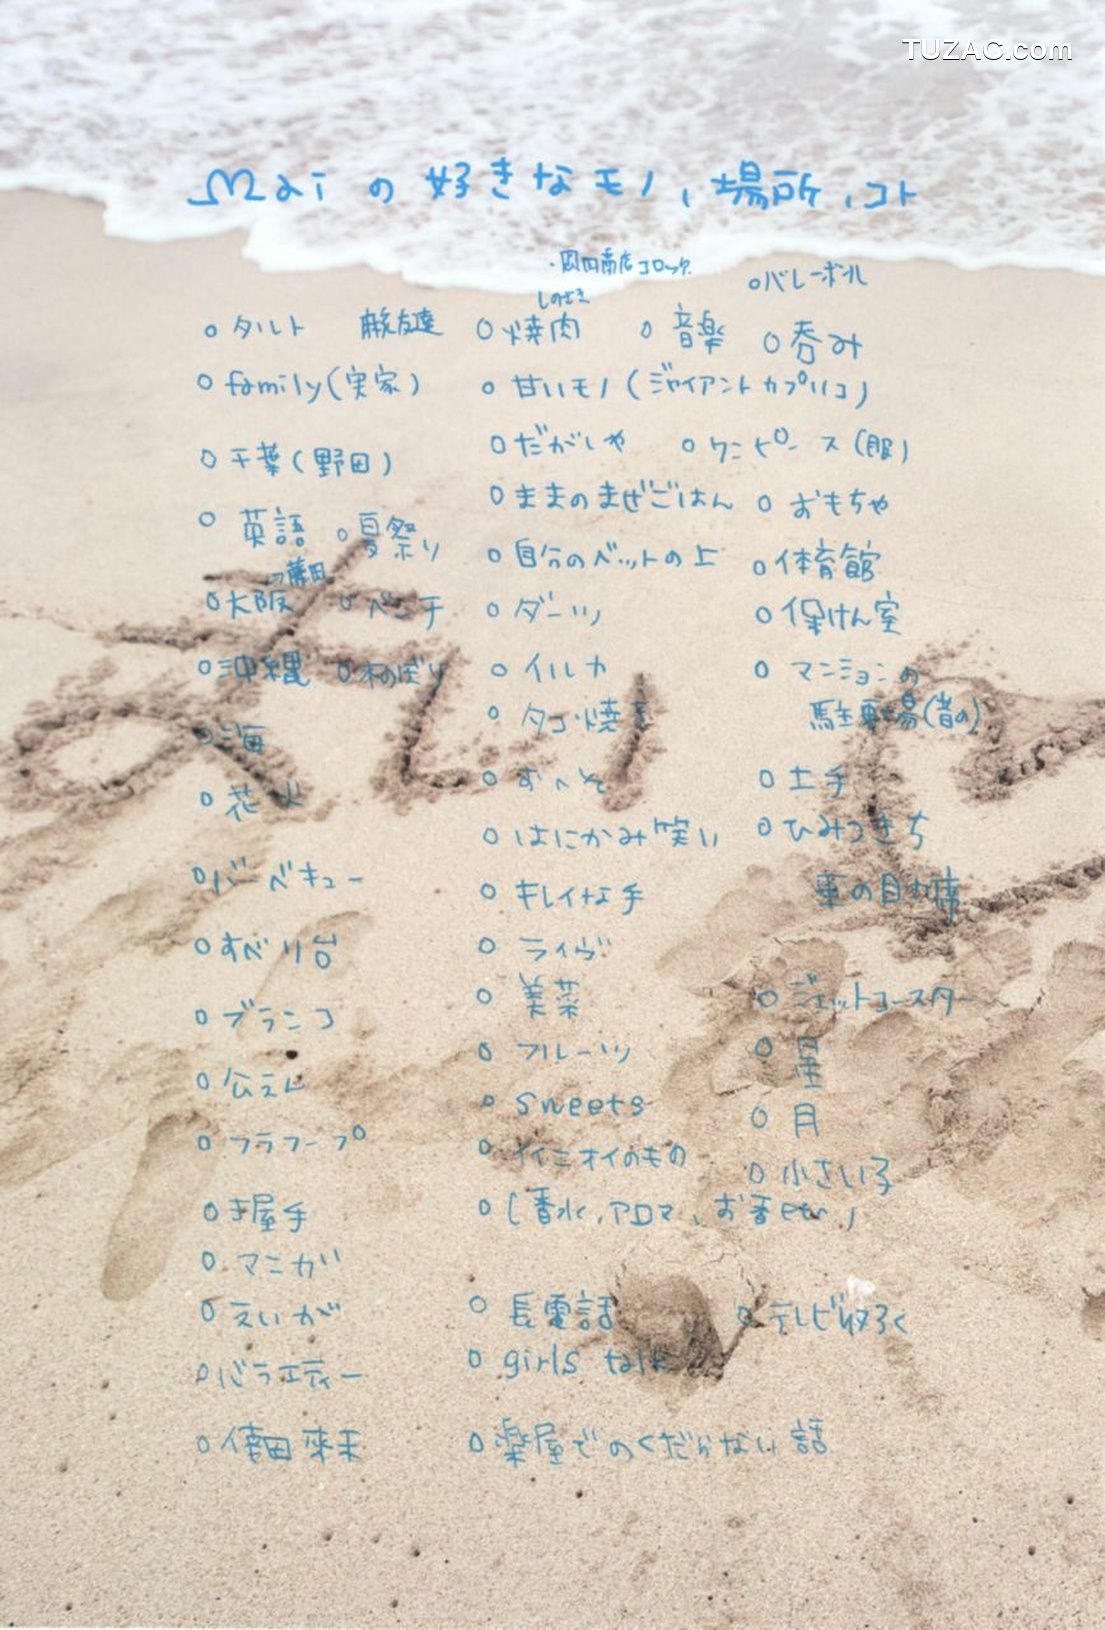 TUZAC.com
Maiの好きなモノ、場所、コト
コロッケ
○バレーボール
○タルト 親友達 ○焼肉 ○音楽 ○呑み
○family(実家) ○甘いモノ(ジャイアントカプリコ)
○千葉(野田) ○だがしや ○ワンピース(服)
○ままのまぜごはん ○おもちゃ
○英語 ○夏祭り ○自分のベットの上 ○体育館
○大阪 ○ベンチ ○ダーツ ○保けん室
○沖縄 ○木のぼり ○イルカ ○マンションの
駐車場(昔の)
タコ焼き
○海
○花火 ○おへそ ○土手
○はにかみ笑い ○ひみつきち
○バーベキュー ○キレイな手 車の助手席
○すべり台 ○ライヴ
○美菜 ○ジェットコースター
○ブランコ ○フルーツ ○星
○公えん ○sweets ○月
○フラフープ ○イイニオイのもの ○小さい子
○(香水、アロマ、お香etc.)
○マンガ
○えいが ○長電話 ○テレビ収ろく
○バラエティー ○girls talk
○倖田來未 ○楽屋でのくだらない話
あい